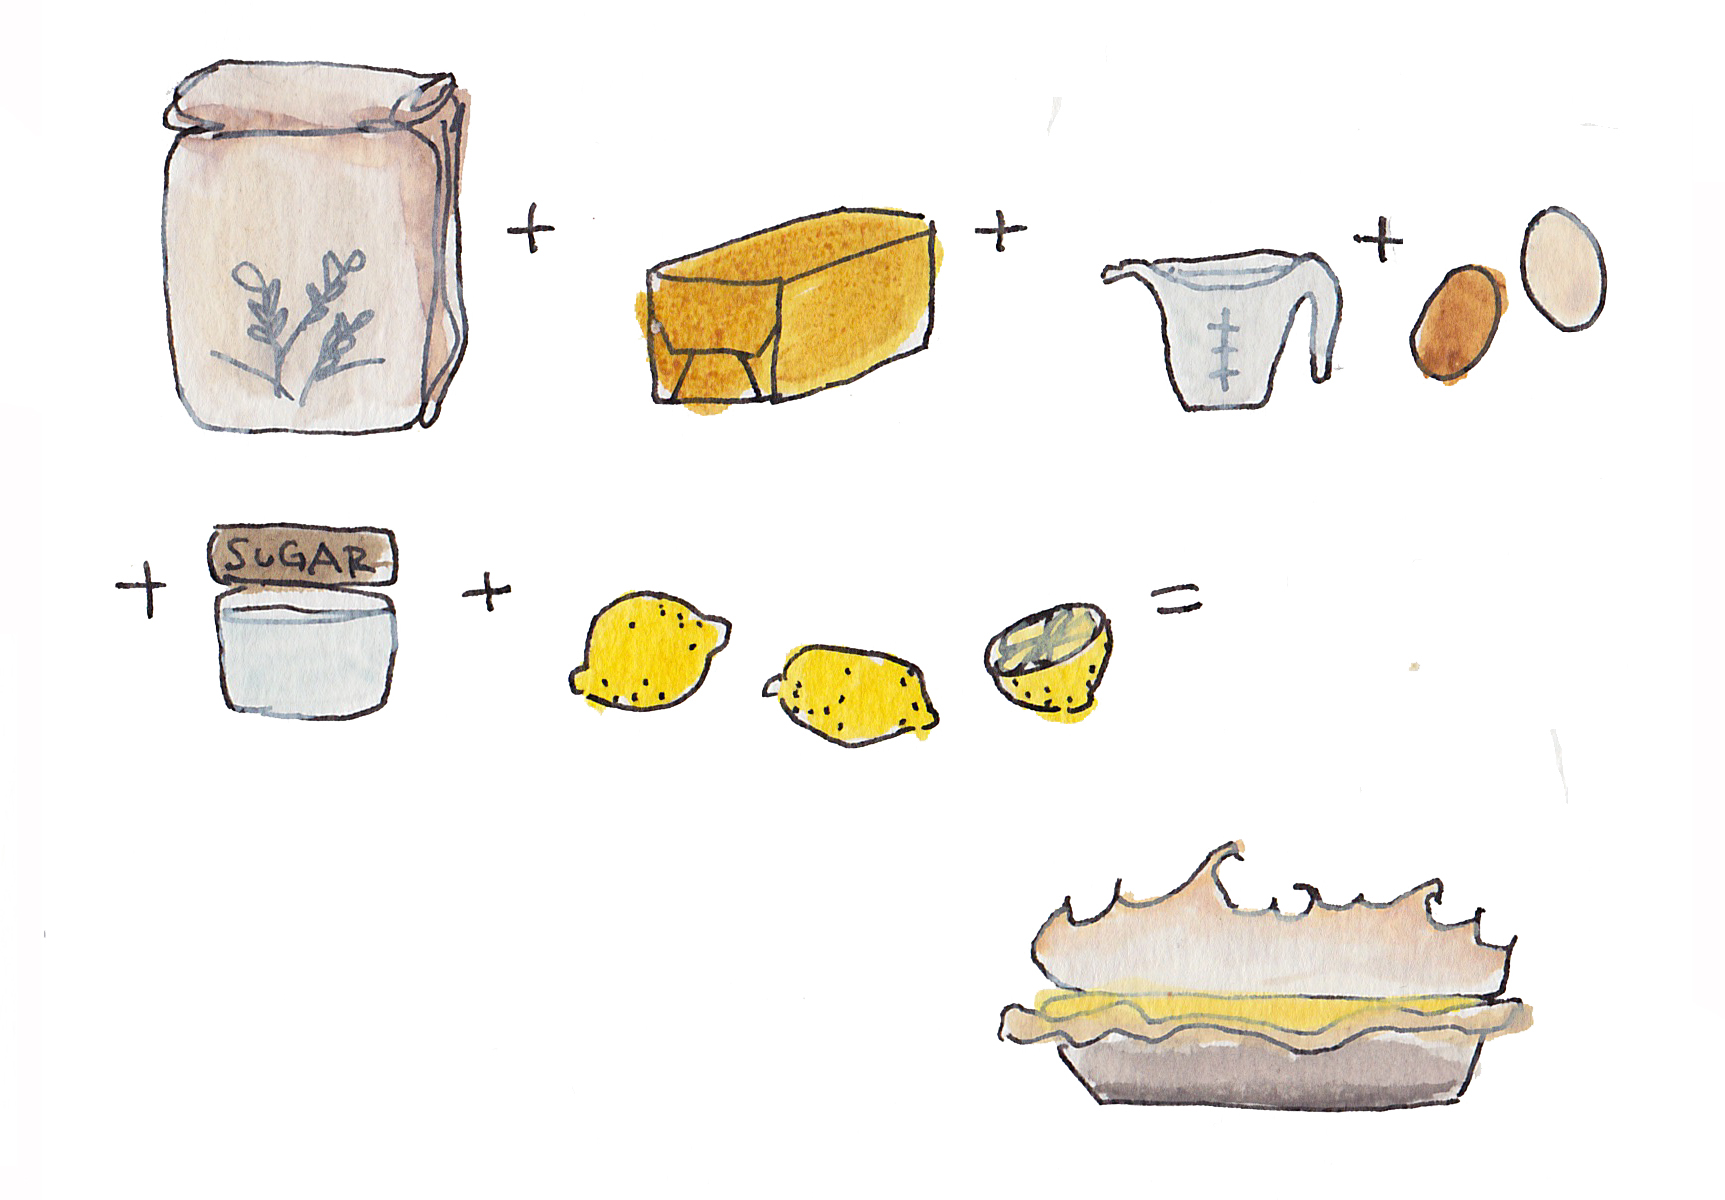 + + +
+ SUGAR + =